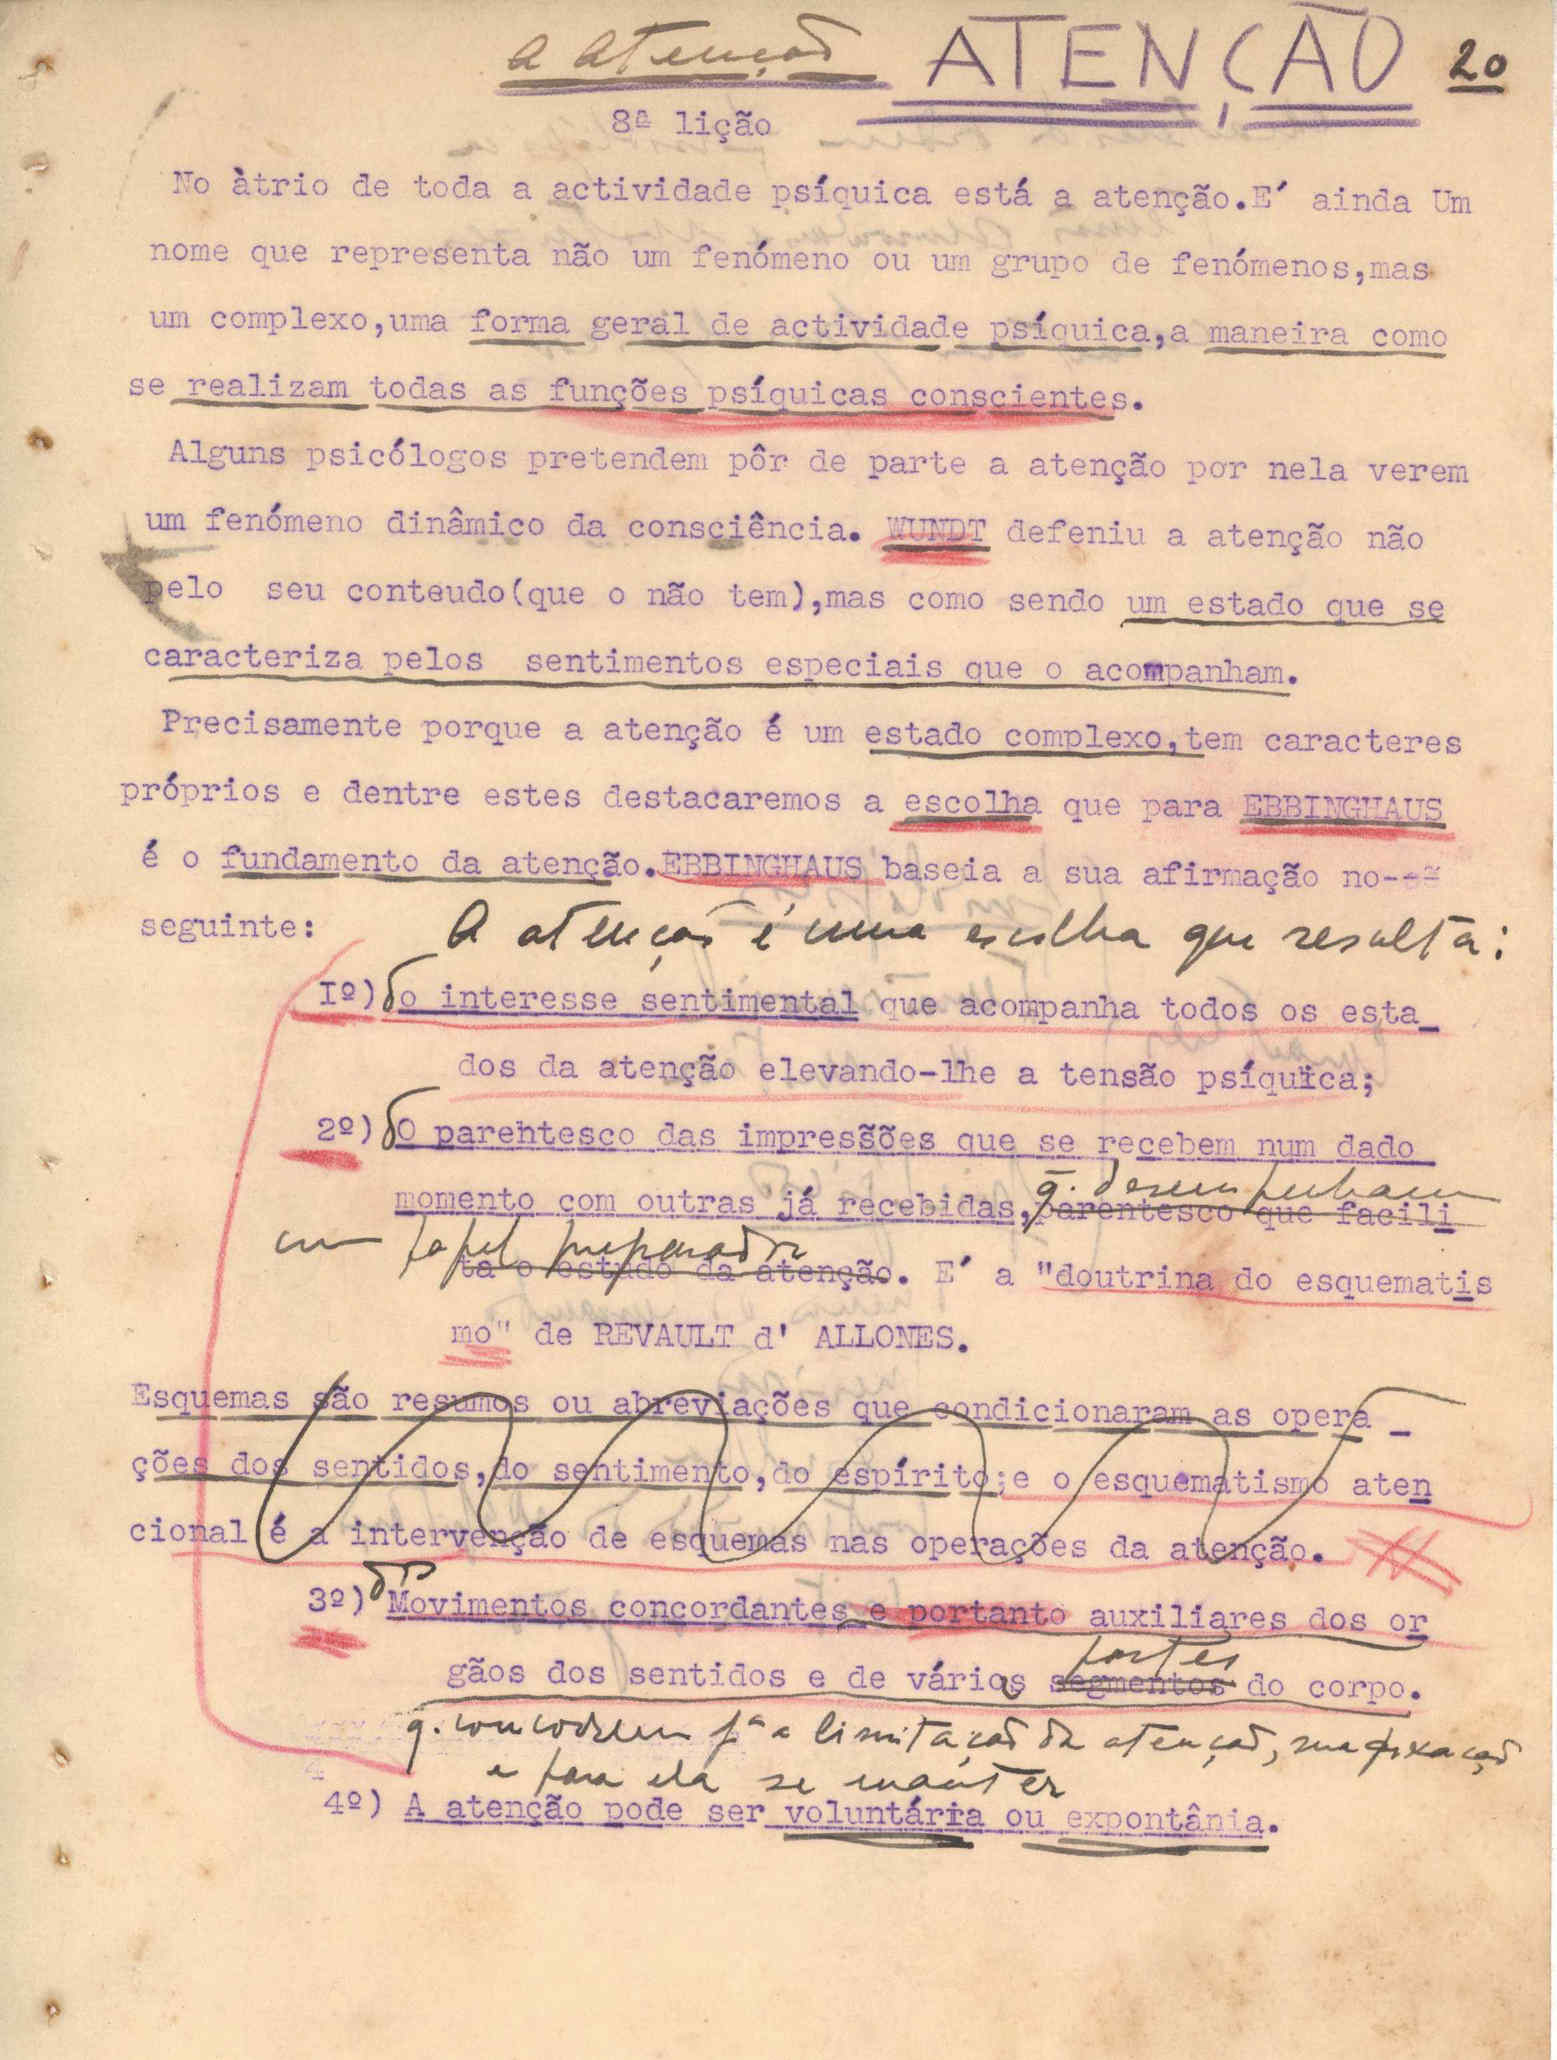 A Atenção ATENÇÃO 20
8ª lição
No àtrio de toda a actividade psíquica está a atenção.E´ ainda Um
nome que representa não um fenómeno ou um grupo de fenómenos,mas
um complexo,uma forma geral de actividade psíquica,a maneira como
se realizam todas as funções psíquicas conscientes.
Alguns psicólogos pretendem pôr de parte a atenção por nela verem
um fenómeno dinâmico da consciência. WUNDT defeniu a atenção não
pelo seu conteudo(que o não tem),mas como sendo um estado que se
caracteriza pelos sentimentos especiais que o acompanham.
Precisamente porque a atenção é um estado complexo,tem caracteres
próprios e dentre estes destacaremos a escolha que para EBBINGHAUS
é o fundamento da atenção.EBBINGHAUS baseia a sua afirmação no--
seguinte: A atenção é uma escolha que resulta:
Iº) do interesse sentimental que acompanha todos os esta_
dos da atenção elevando-lhe a tensão psíquica;
2º) dO parentesco das impressões que se recebem num dado
momento com outras já recebidas, parentesco que facili
q. desempenham
um papel preparador
ta o estudo da atenção. E´ a "doutrina do esquematis
mo" de REVAULT d' ALLONES.
Esquemas são resumos ou abreviações que condicionaram as opera_
ções dos sentidos,do sentimento,do espírito;e o esquematismo aten
cional é a intervenção de esquemas nas operações da atenção.
3º) dos Movimentos concordantes e portanto auxiliares dos or
partes
gãos dos sentidos e de vários segmentos do corpo.
q. concorrem pª a limitação da atenção, sua fixação
e para ela se manter
4º) A atenção pode ser voluntária ou expontânia.